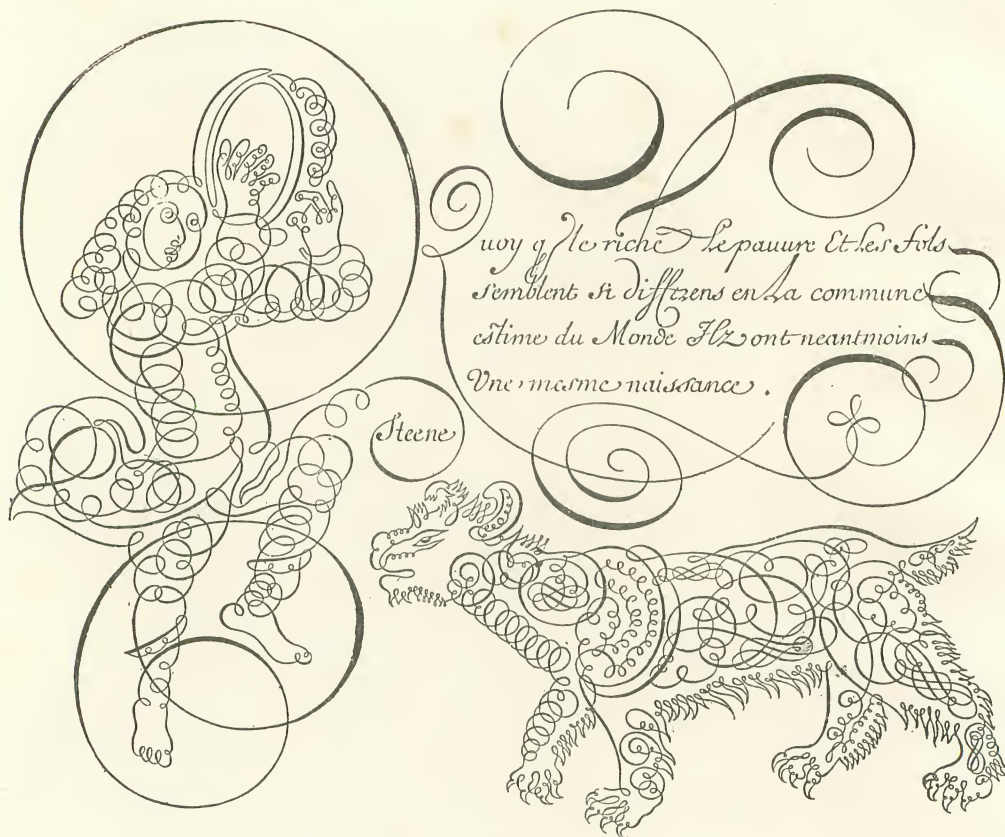 Quoy q le riche Le pauure Et Les fols
semblent si differens en La commune
estime du Monde Ilz ont neantmoins
Vne mesme naissance .
Steene